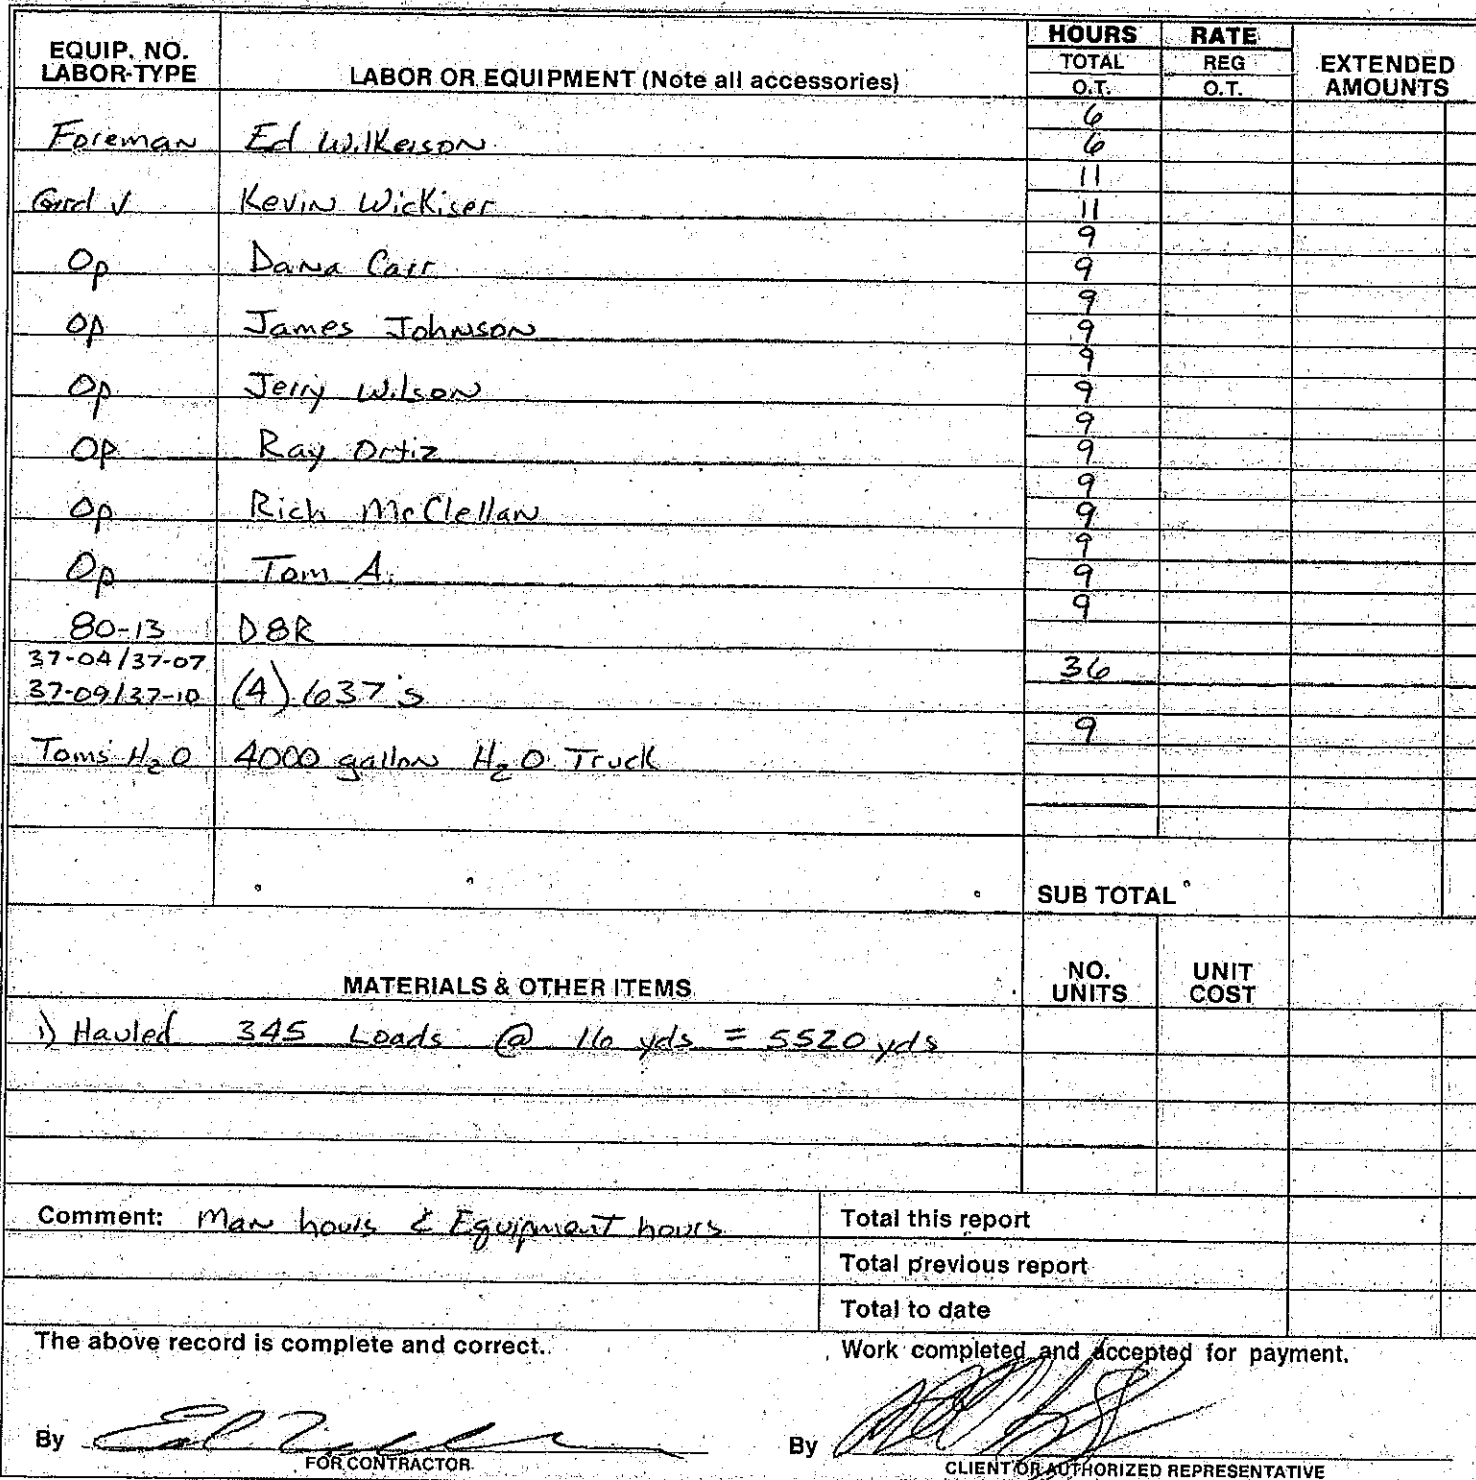 EQUIP. NO.
LABOR-TYPE
LABOR OR EQUIPMENT (Note all accessories)
HOURS
TOTAL
O.T.
RATE
REG
O.T.
EXTENDED
AMOUNTS
Foreman Ed Wilkerson 6
6
Grd ✓ Kevin Wickiser 11
11
Op Dana Carr 9
9
Op James Johnson 9
9
Op Jerry Wilson 9
9
Op Ray Ortiz 9
9
Op Rich McClellan 9
9
Op Tom A. 9
9
80-13 D8R 9
37-04/37-07
37-09/37-10 (4) 637's 36
Toms H2O 4000 gallon H2O Truck 9
SUB TOTAL
MATERIALS & OTHER ITEMS
NO.
UNITS
UNIT
COST
1) Hauled 345 Loads @ 16 yds = 5520 yds
Comment: Man hours & Equipment hours
Total this report
Total previous report
Total to date
The above record is complete and correct.
Work completed and accepted for payment.
By
FOR CONTRACTOR
By
CLIENT OR AUTHORIZED REPRESENTATIVE